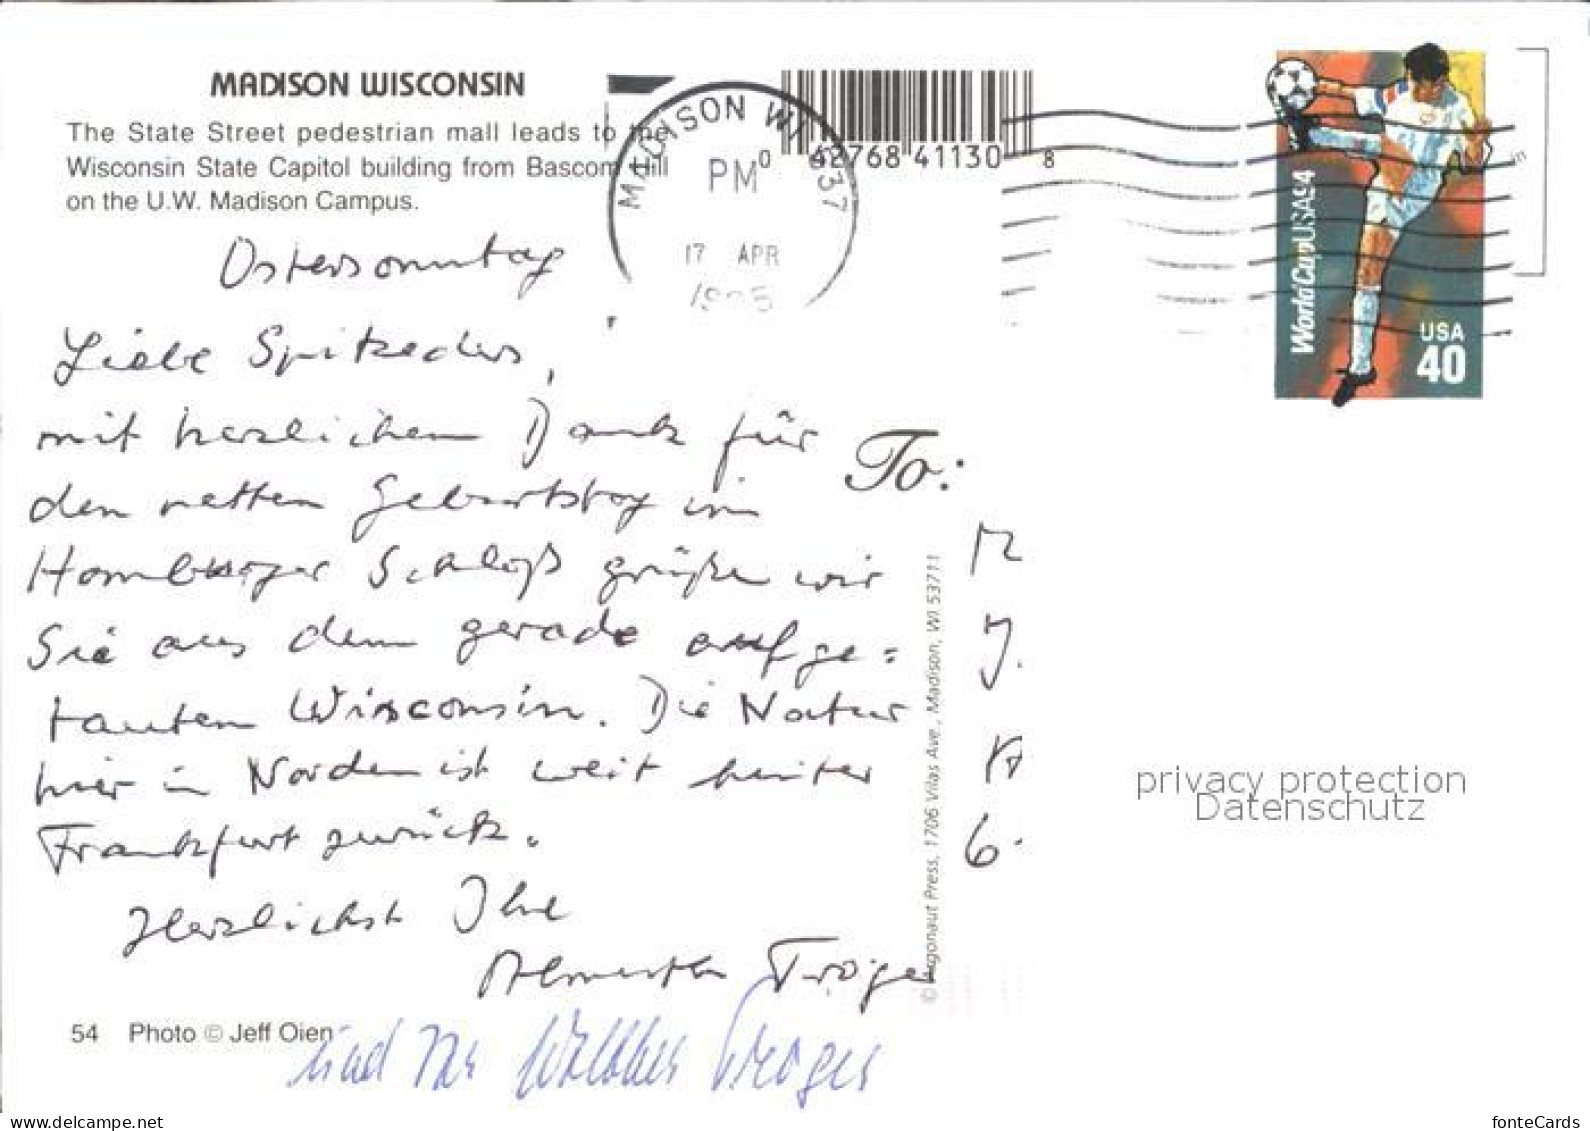 MADISON WISCONSIN
The State Street pedestrian mall leads to the
Wisconsin State Capitol building from Bascom Hill
on the U.W. Madison Campus.
MADISON WI 537
PM
17 APR
1995
0 42768 41130 8
World Cup USA94
USA
40
Ostersonntag
Liebe Spitzeders,
mit herzlichem Dank für
den netten Geburtstag im
Homburger Schloß grüßen wir
Sie aus dem gerade aufge=
tauten Wisconsin. Die Natur
hier im Norden ist weit hinter
Frankfurt zurück.
Herzlichst Ihre
Almuth Tröger
und Ihr Tröger
To:
© Argonaut Press, 1706 Vilas Ave., Madison, WI 53711
54 Photo © Jeff Oien
privacy protection
Datenschutz
www.delcampe.net
fonteCards